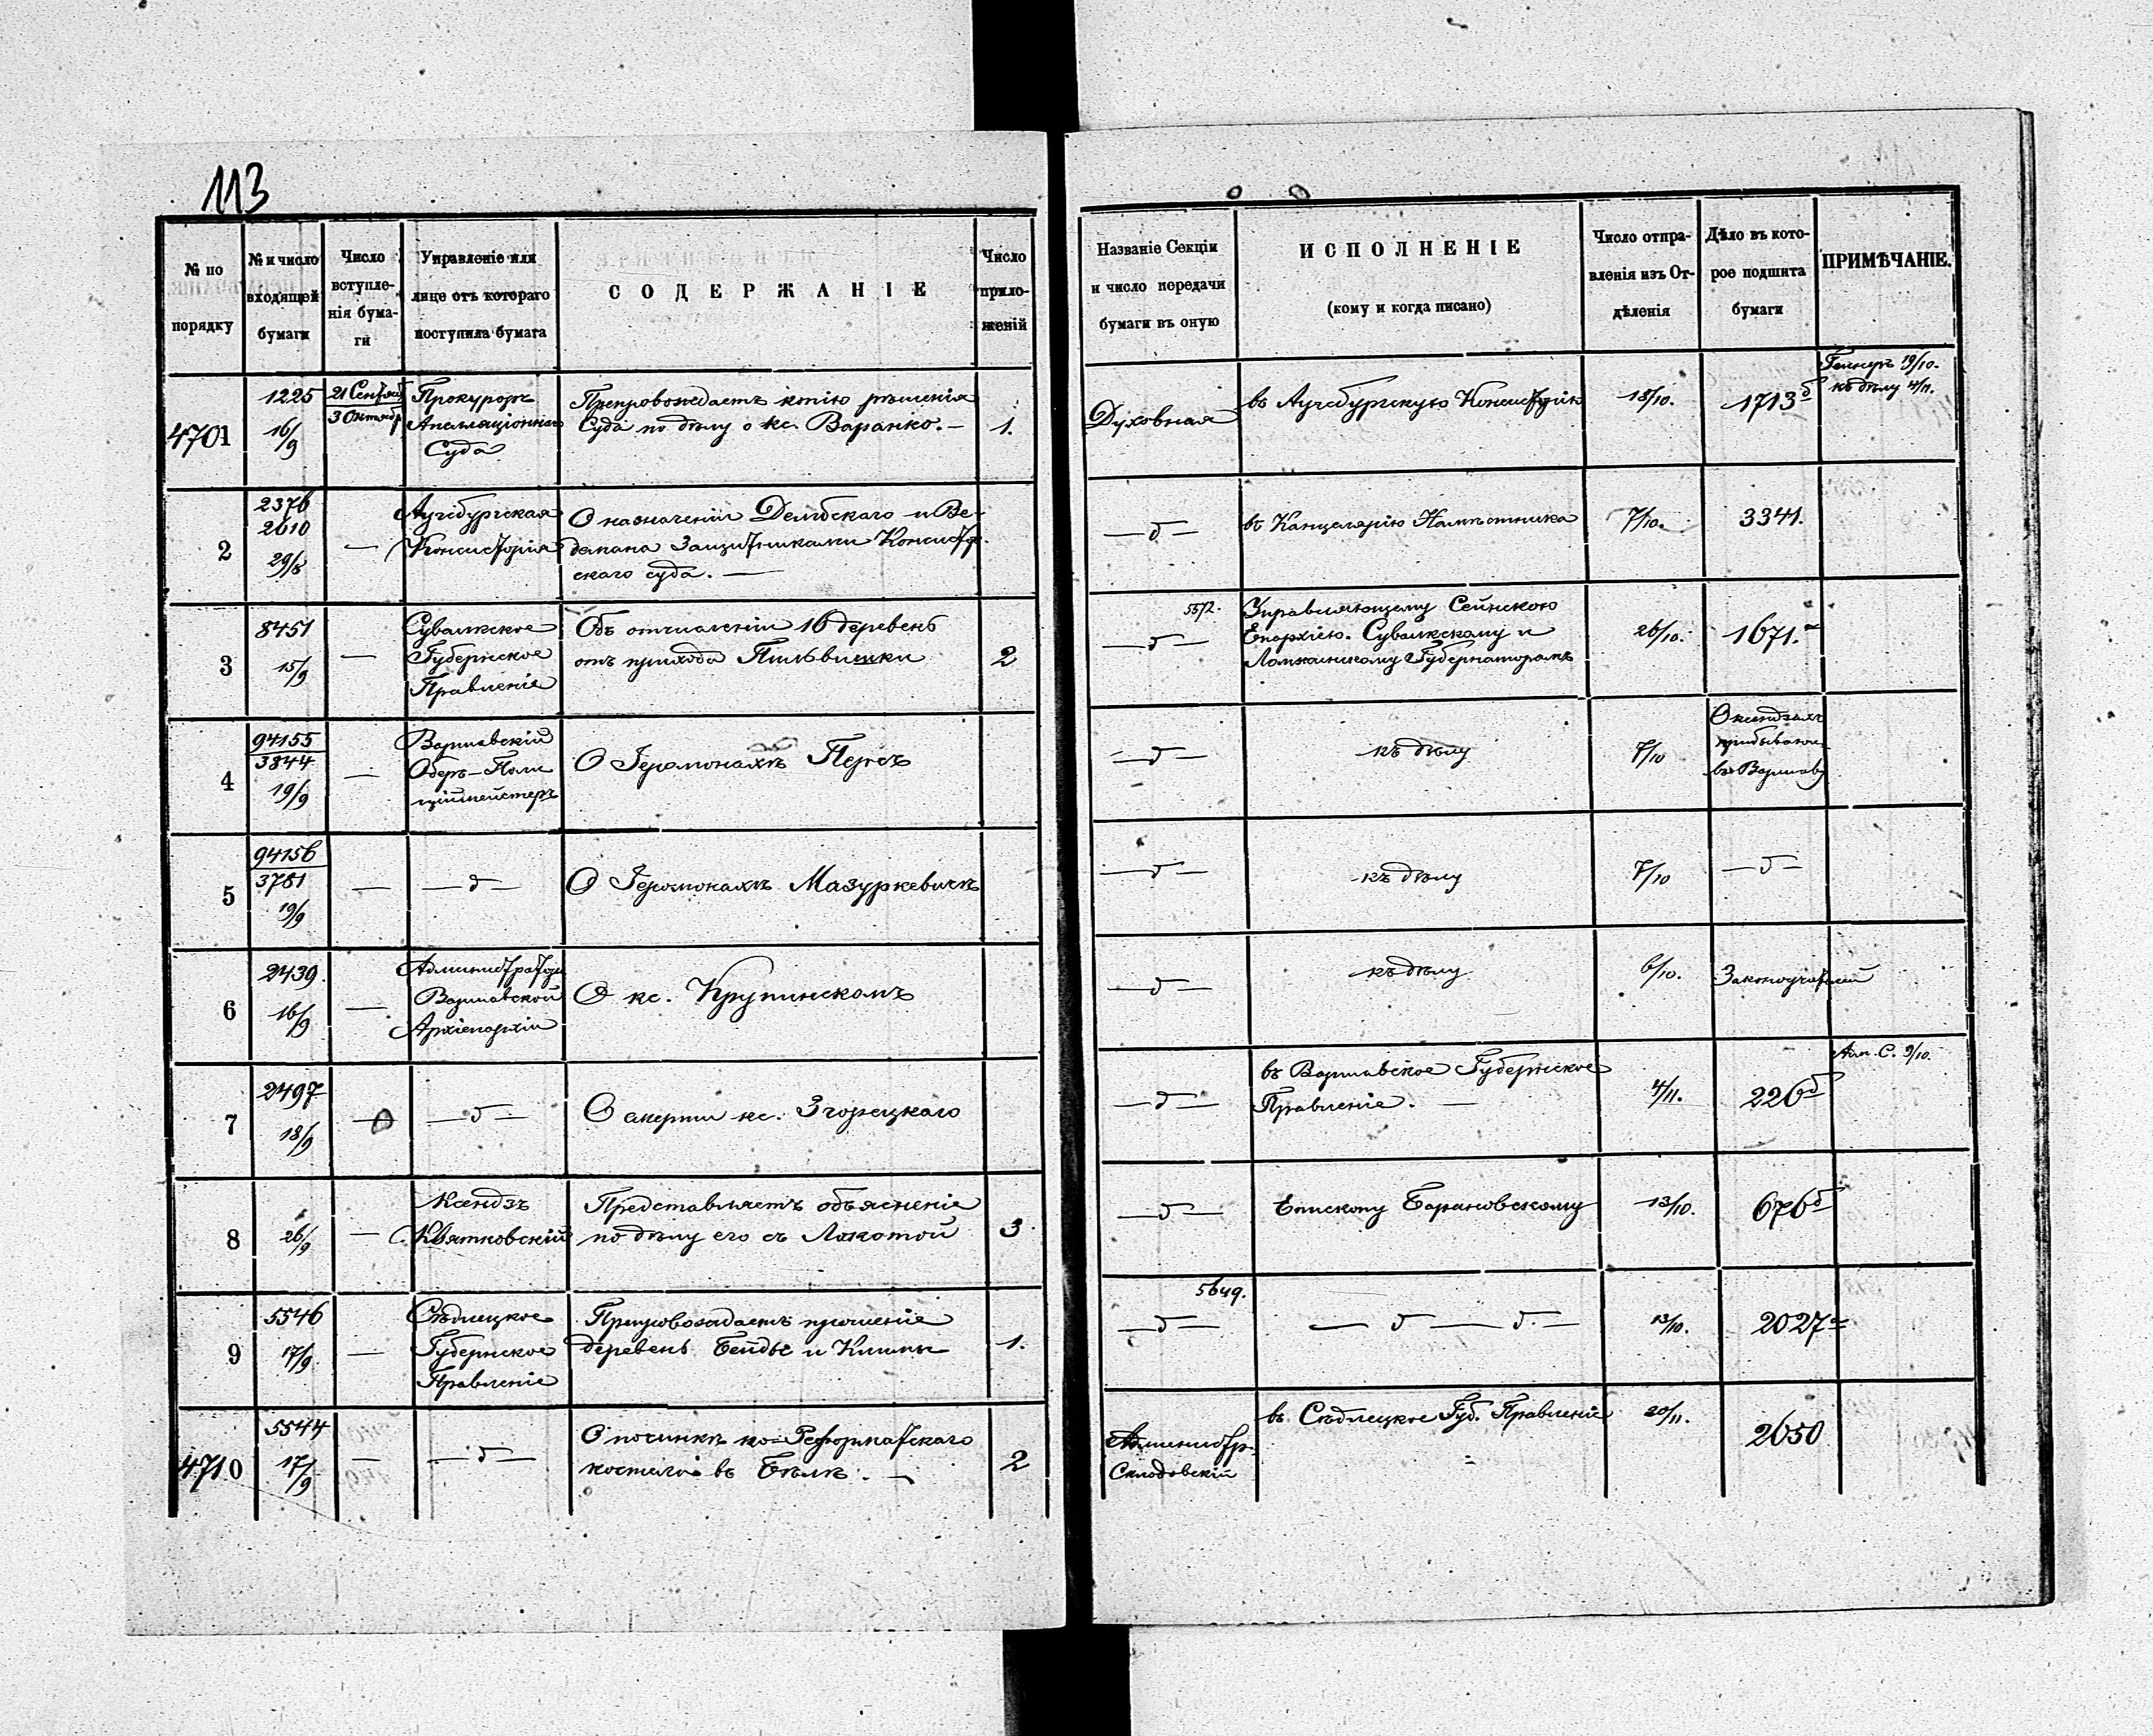 113
№ по порядку
№ и число входящей бумаги
Число вступле-нія бума-ги
Управленіе или лице отъ котораго поступила бумага
СОДЕРЖАНІЕ
Число прило-женій
Названіе Секціи и число передачи бумаги въ оную
ИСПОЛНЕНІЕ
(кому и когда писано)
Число отпра-вленія изъ От-дѣленія
Дѣло въ кото-рое подшита бумаги
ПРИМѢЧАНІЕ.
4701
1225
16/9
21 Сентяб
3 Октябр
Прокуроръ
Апелляціоннаго
Суда
Препровождаетъ копію рѣшенія
Суда по дѣлу о кс. Варанко. —
1.
Духовная
въ Аугсбургскую Консисторію
18/10.
1713б
19/10.
къ дѣлу 4/11.
2
2376
2610
29/8
—
Аугсбургская
Консисторія
О назначеніи Дембскаго и Ве-
демана Защитниками Консистор.
скаго суда. —
— д —
въ Канцелярію Намѣстника
7/10.
3341.
3
8451
15/9
—
Сувалкское
Губернское
Правленіе
Объ отчисленіи 16 деревень
отъ прихода Пильвишки
2
5572.
— д —
Управляющему Сейнскою
Епархіею. Сувалкскому и
Ломжинскому Губернаторамъ
26/10.
1671.а
4
94155
3844
19/9
—
Варшавскій
Оберъ-Поли
цiймейстеръ
О Іеромонахѣ
— д —
къ дѣлу
7/10
О ксендзахъ
прибывающ.
въ Варшаву
5
94156
3781
19/9
—
— д —
О Іеромонахѣ Мазуркевичѣ
— д —
къ дѣлу
7/10
— д —
6
2439.
16/9
—
Администраторъ
Варшавской
Архіепархіи
О кс. Крупинскомъ
— д —
къ дѣлу
6/10.
Законоучителей
7
2497
18/9
—
— д —
О смерти кс. Згорецкаго
— д —
въ Варшавское Губернское
Правленіе. —
4/11.
226б
С. 9/10.
8
26/9
—
Ксендзъ
Квятковскій
Представляетъ объясненіе
по дѣлу его съ Локотой
3
— д —
Епископу Барановскому
13/10.
676б
9
5546
17/9
—
Сѣдлецкое
Губернское
Правленіе
Препровождаетъ прошеніе
деревень Бейды и Климы
1.
5649.
— д —
— д — д. —
13/10.
2027а
4710
5544
17/9
—
— д —
О починкѣ по-Реформатскаго
костела въ Бѣлѣ. —
2
Администр.
Склодовскій
въ Сѣдлецкое Губ. Правленіе
20/11.
2650